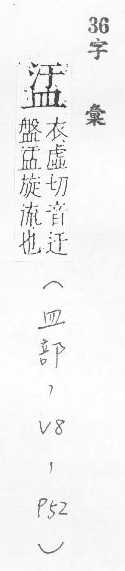 36
字彙
盓
衣虛切音迂
盤盓旋流也
（皿部，V8，P52）